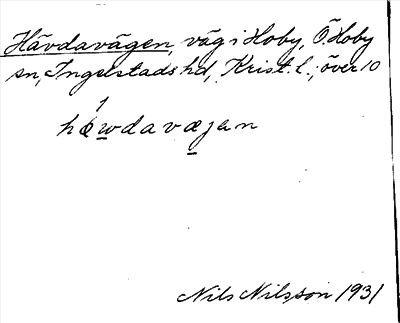 Hävdavägen, väg i Hoby, Ö. Hoby
sn, Ingelstads hd, Krist. l., över 10
Nils Nilsson 1931